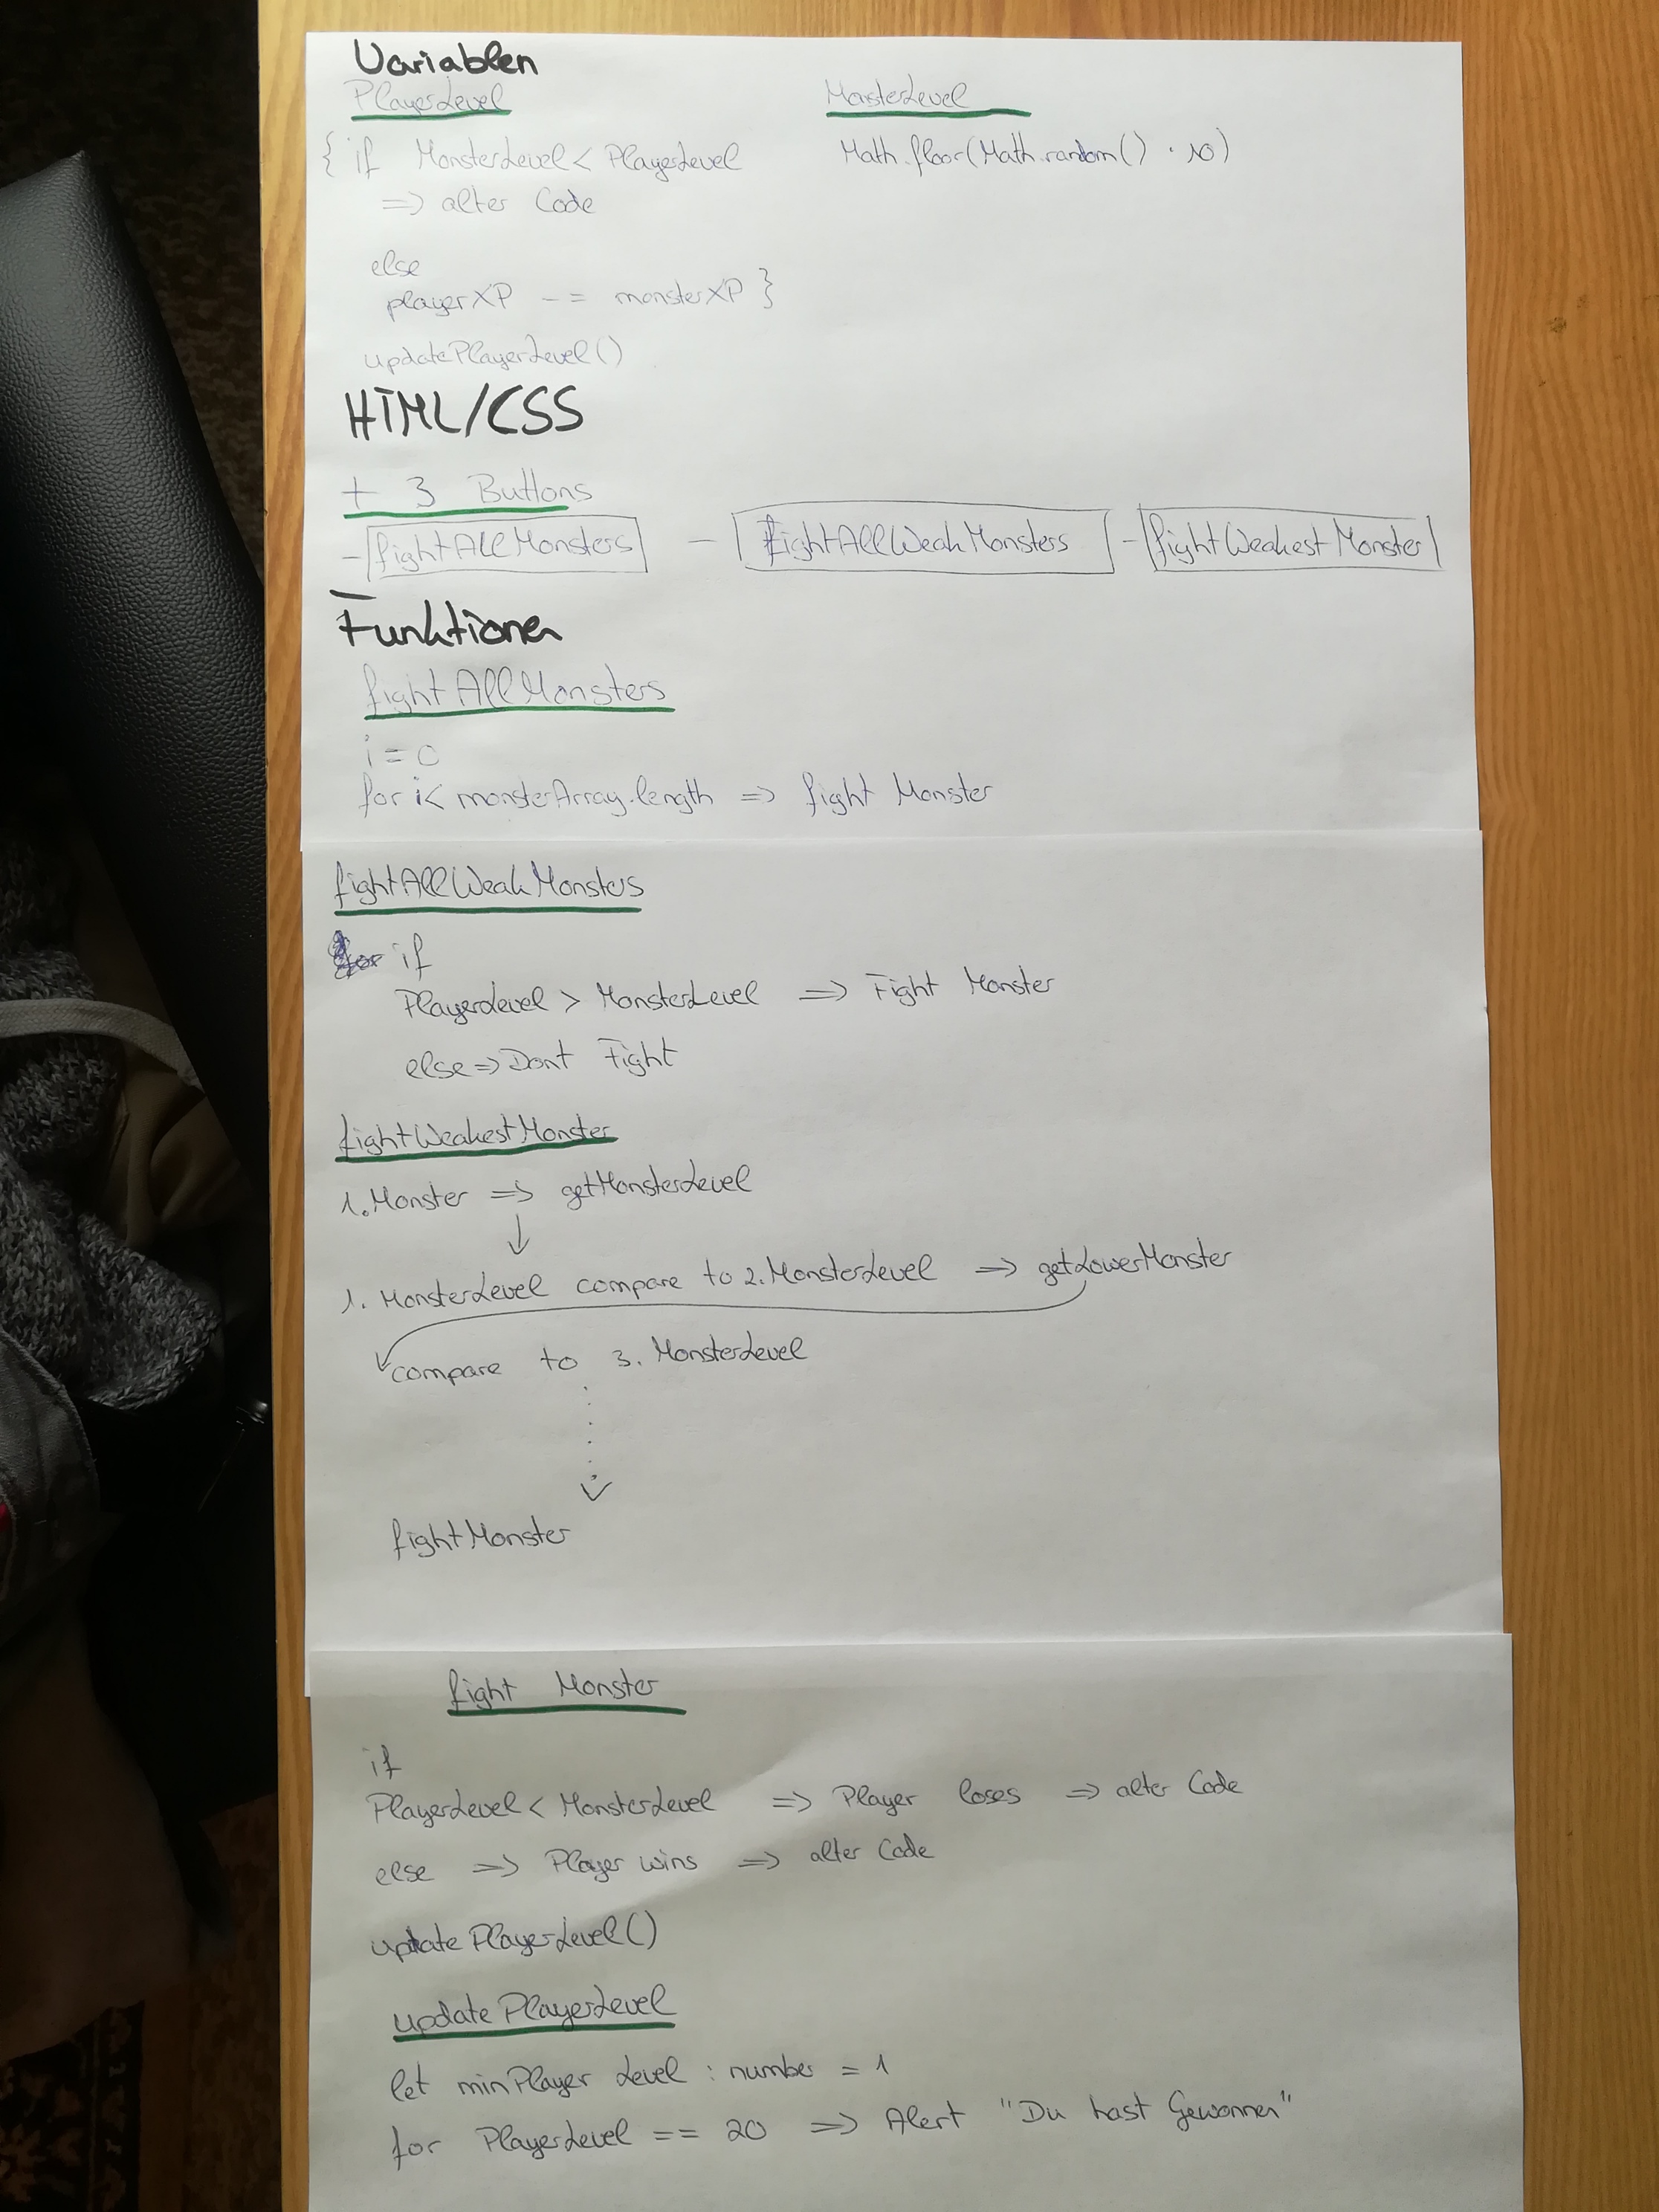 Variablen
PlayerLevel
MonsterLevel
{ if MonsterLevel < PlayerLevel
Math.floor(Math.random() · 10)
=> alter Code
else
playerXP -= monsterXP }
updatePlayerLevel()
HTML/CSS
+ 3 Buttons
- fightAllMonsters - fightAllWeakMonsters - fightWeakestMonster
Funktionen
fightAllMonsters
i = 0
for i < monsterArray.length => fight Monster
fightAllWeakMonsters
for if
PlayerLevel > MonsterLevel => Fight Monster
else => Dont Fight
fightWeakestMonster
1. Monster => getMonsterLevel
↓
1. MonsterLevel compare to 2. MonsterLevel => getLowerMonster
compare to 3. MonsterLevel
fightMonster
fight Monster
if
PlayerLevel < MonsterLevel => Player loses => alter Code
else => Player wins => alter Code
updatePlayerLevel()
updatePlayerLevel
let minPlayer Level : number = 1
for PlayerLevel == 20 => Alert "Du hast Gewonnen"